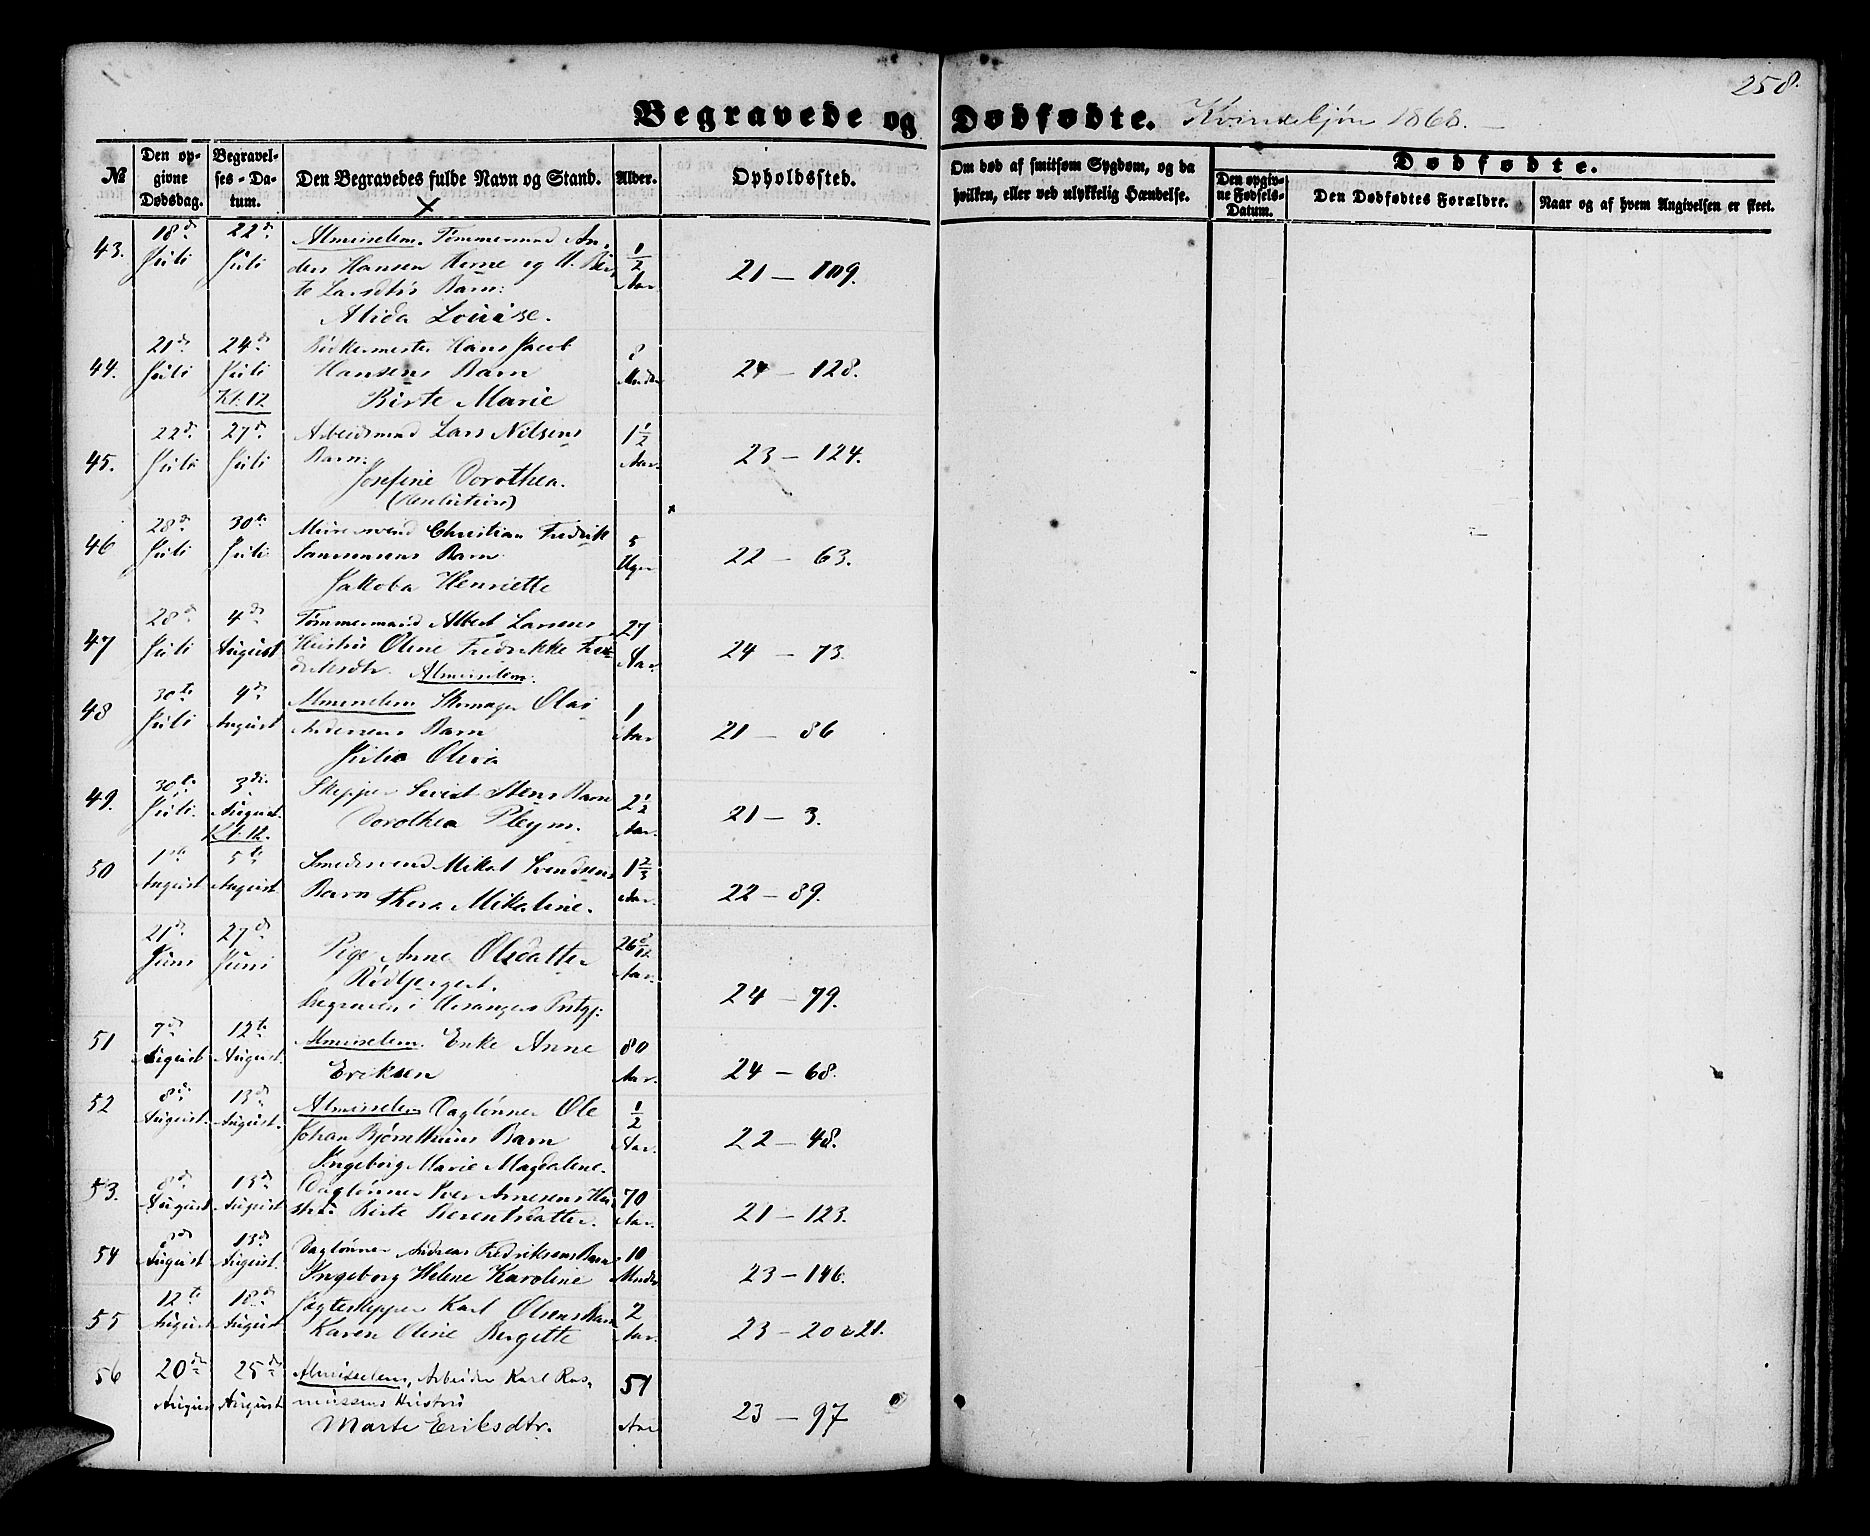 258.
Begravede og Dødfødte. Kvindekjøn 1868.
№
Den opgivne Dødsdag.
Begravelses-Datum.
Den Begravedes fulde Navn og Stand.
Alder.
Opholdssted.
Om død af smitsom Sygdom, og da hvilken, eller ved ulykkelig Hændelse.
Dødfødte.
Den opgivne Fødsels-Datum.
Den Dødfødtes Forældre.
Naar og af hvem Angivelsen er skeet.
43. 18de Juli 22de Juli
Almisselem. Tømmermand An-
ders Hansen og H. Bir-
te Larsdtrs Barn:
Alida Louise.
1/2 Aar
21 — 109.
44. 21de Juli 24de Juli Kl: 12
Hans Jacob
Hansens Barn
Birte Marie
8 Mndr
24 — 128.
45. 22de Juli 27de Juli
Arbeidsmand Lars Nilsens
Barn:
Josefine Dorothea.
1 1/2 Aar.
23 — 124.
46 28de Juli 30te Juli
Muursvend Christian Fredrik
Barn
Jakoba Henriette
5 Uger
22 — 63.
47 28de Juli 4de August
Tømmermand Albert Larsens
Hustru Oline Fredrikke Fre-
driksdtr. Almisselem.
27 Aar
24 — 73.
48 30te Juli 4de August
Almisselem Skomager Olai
Andersens Barn
Julia Olivia
1 Aar
21 — 86
49. 30te Juli. 3die August. Kl: 12.
Skipper Stens Barn
Dorothea Pleym.
2 1/2 Aar.
21 — 3.
50 1ste August 5te August
Smedsvend Mikal Svendsens
Barn Thea Mikaline.
1 2/3 Aar.
22 — 89.
21de Juni 27de Juni
Pige Anne Olsdatter
Rødbjerget.
begraven i Prstgj:
Aar.
24 — 79.
51 7de August 12te August.
Almisselem. Enke Anne
Eriksen
80 Aar.
24 — 68.
52 8de August. 13de August.
Almisselem Dagløнner Ole
Johan Barn
Ingeborg Marie Magdalene.
1/2 Aar.
22 — 48.
53. 8de August 13de August
Daglønner Iver Arnesens Hu-
stru Birte Berentsdatter.
70 Aar.
21 — 123.
54 August 13de August.
Daglønner Andreas Fredriksens Barn
Ingeborg Helene Karoline
10 Mndr
23 — 146.
55 12te August 18de August
Jagteskipper Karl Olsens Barn
Karen Oline Bergitte
2 Aar.
23 — 20 & 21.
56 20de August 25de August
Almisselem, Arbeider Karl Ras-
mussens Hustru
Marte Eriksdtr.
51 Aar
23 — 97